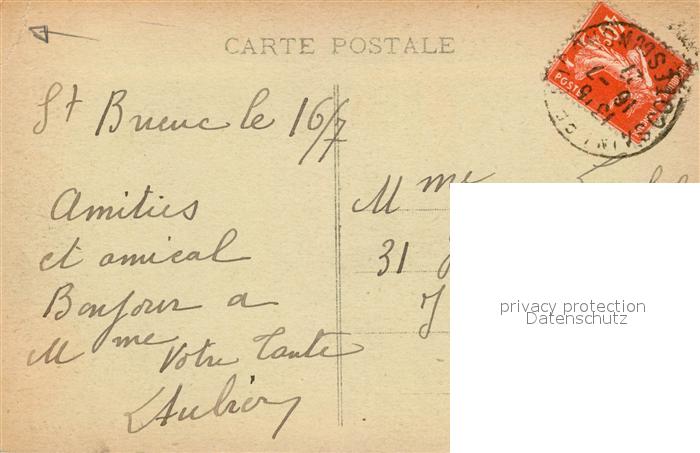 CARTE POSTALE
St Brieuc le 16/7
Amitiés
et amical
Bonjour a
Mme Votre tante
Mme
31
privacy protection
Datenschutz
POSTES
16 - 7